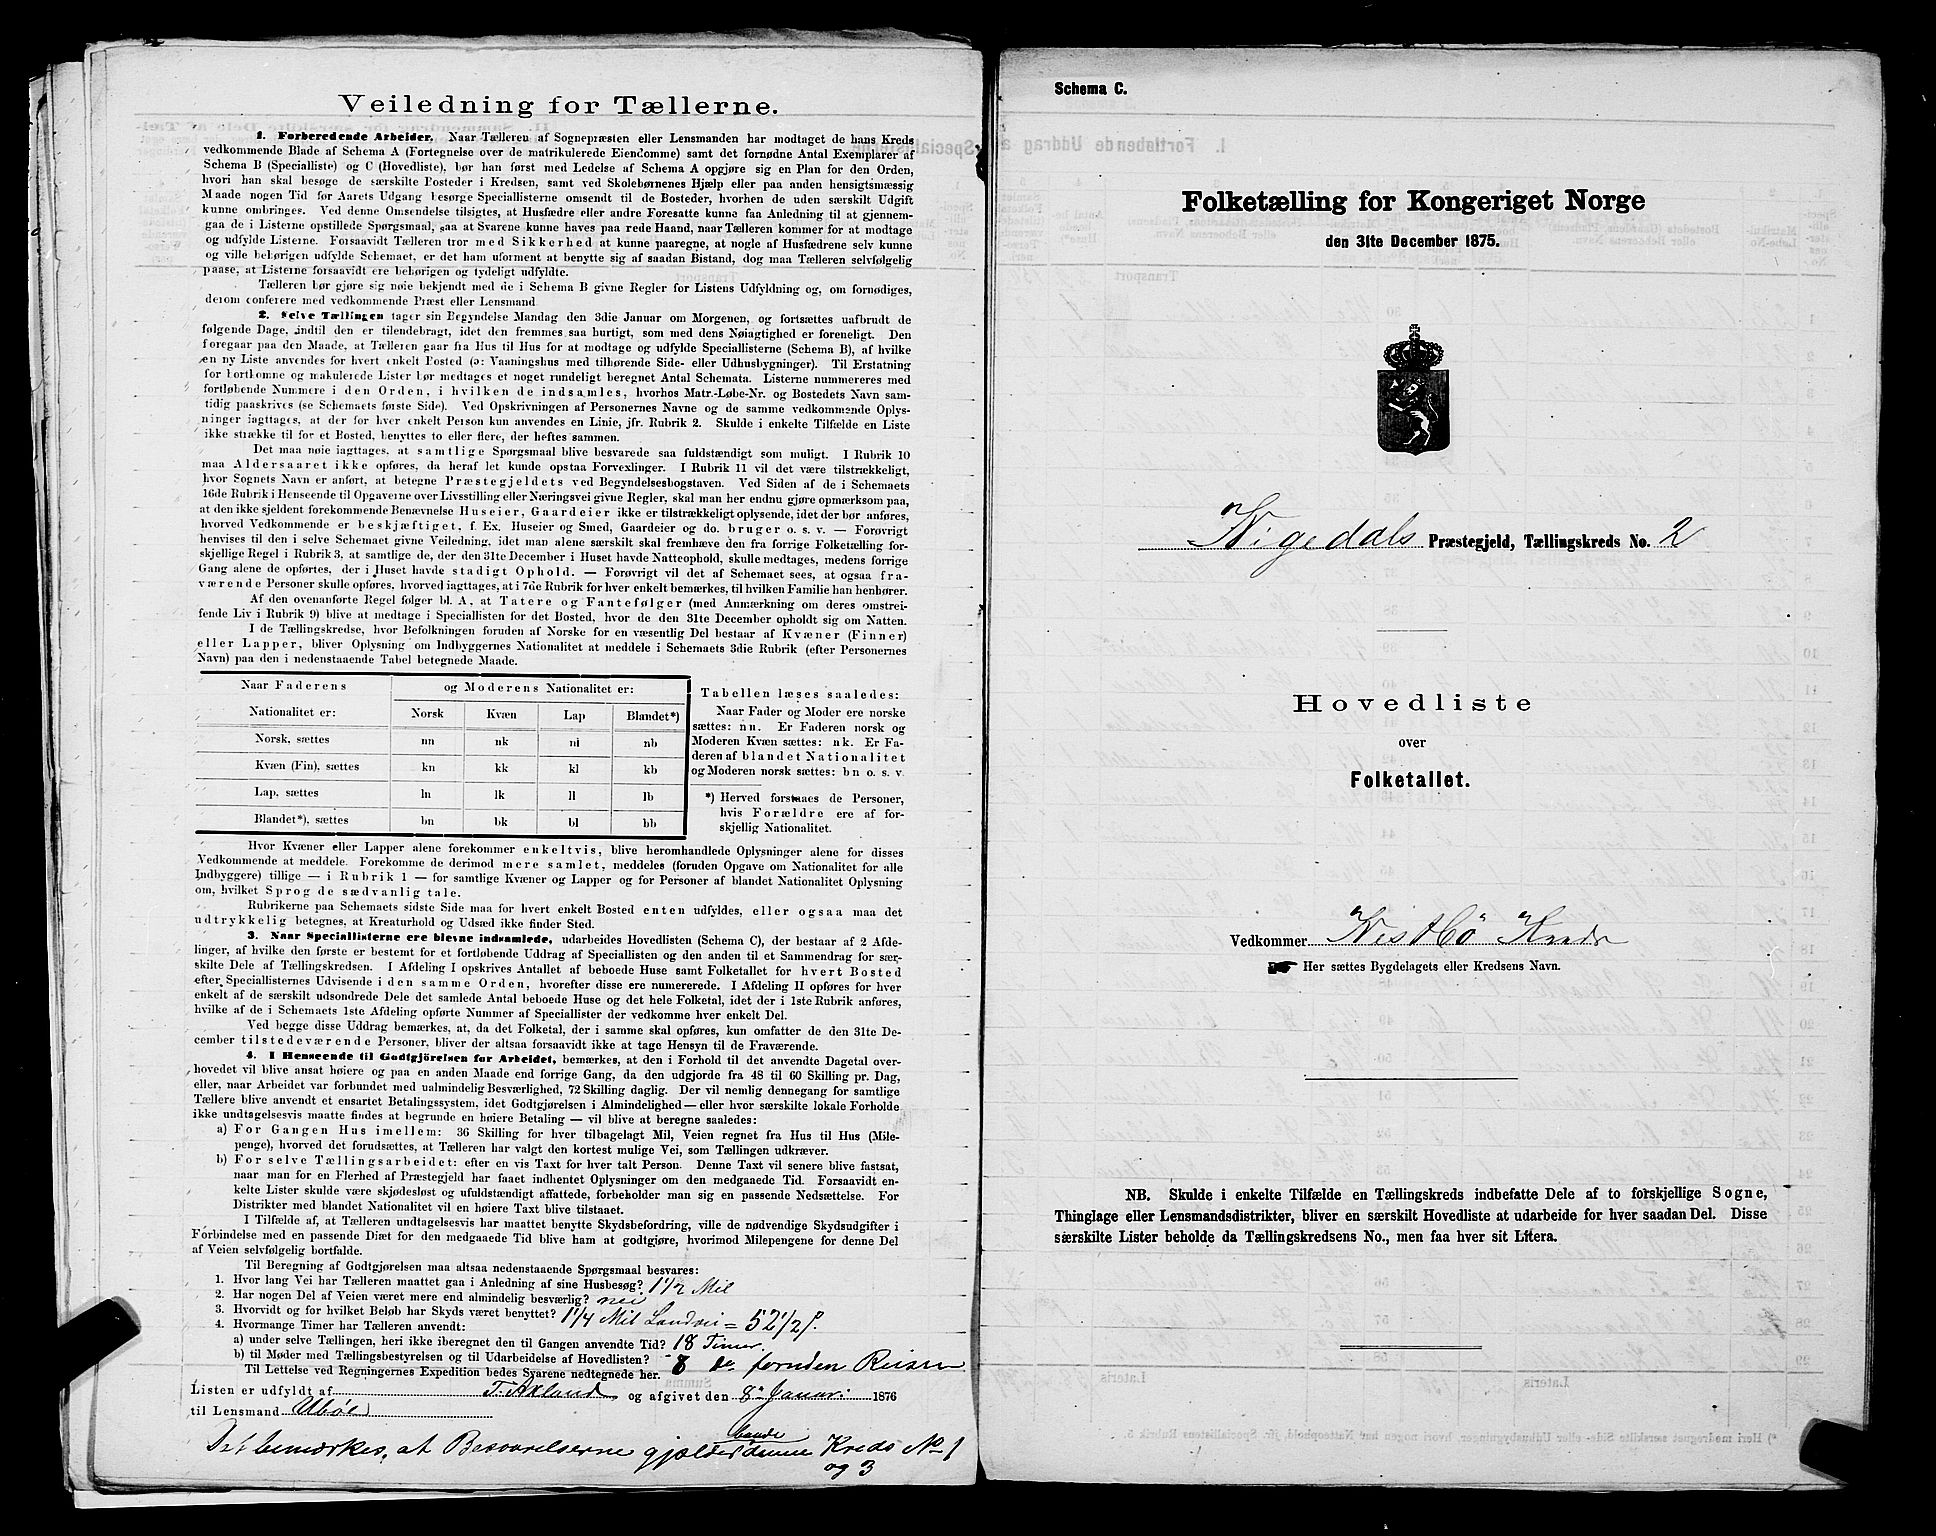 Veiledning for Tællerne.
1. Forberedende Arbeider, Naar Tælleren af Sognepræsten eller Lensmanden har modtaget de hans Kreds
vedkommende Blade af Schema A (Fortegnelse over de matrikulerede Eiendomme) samt det fornødne Antal Exemplarer af
Schema B (Specialliste) og C (Hovedliste), bør han først med Ledelse af Schema A opgjøre sig en Plan for den Orden,
hvori han skal besøge de særskilte Bosteder i Kredsen, samt ved Skolebørnenes Hjælp eller paa anden hensigtsmæssig
Maade nogen Tid før Aarets Udgang besørge Speciallisterne omsendt til de Bosteder, hvorhen de uden særskilt Udgift
kunne ombringes. Ved denne Omsendelse tilsigtes, at Husfædre eller andre Foresatte kunne faa Anledning til at gjennem-
gaa de i Listerne opstillede Spørgsmaal, saa at Svarene kunne haves paa rede Haand, naar Tælleren kommer for at modtage
og udfylde Listerne. Forsaavidt Tælleren tror med Sikkerhed at kunne paaregne, at nogle af Husfædrene selv kunne
og ville behørigen udfylde Schemaet, er det ham uforment at benytte sig af saadan Bistand, dog maa Tælleren selvfølgelig
paase, at Listerne forsaavidt ere behørigen og tydeligt udfyldte.
Tælleren bør gjøre sig nøie bekjendt med de i Schema B givne Regler for Listens Udfyldning og, om fornødiges,
derom conferere med vedkommende Præst eller Lensmand
2. Selve Tællingen tager sin Begyndelse Mandag den 3die Januar om Morgenen, og fortsættes uafbrudt de
følgende Dage, indtil den er tilendebragt, idet den fremmes saa hurtigt, som med dens Nøiagtighed er foreneligt. Den
foregaar paa den Maade, at Tælleren gaar fra Hus til Hus for at modtage og udfylde Speciallisterne (Schema B), af hvilke
en ny Liste anvendes for hvert enkelt Bosted (ɔ: Vaaningshus med tilhørende Side- eller Udhusbygninger). Til Erstatning
for bortkomne og makulerede Lister bør medtages et noget rundeligt beregnet Antal Schemata. Listerne nummereres med
fortløbende Nummere i den Orden, i hvilken de indsamles, hvorhos Matr.-Løbe-Nr. og Bostedets Navn sam-
tidig paaskrives (se Schemaets første Side). Ved Opskrivningen af Personernes Navne og de samme vedkommende Oplys-
ninger iagttages, at der for hver enkelt Person kun anvendes en Linie, jfr. Rubrik 2. Skulde i enkelte Tilfælde en Liste
ikke strække til for et Bosted, benyttes to eller flere, der heftes sammen.
Det maa nøie iagttages, at samtlige Spørgsmaal blive besvarede saa fuldstændigt som muligt. I Rubrik 10
maa Aldersaaret ikke opføres, da heraf let kunde opstaa Forvexlinger. I Rubrik 11 vil det være tilstrækkeligt,
hvor Sognets Navn er anført, at betegne Præstegjeldets ved Begyndelsesbogstaven. Ved Siden af de i Schemaets
16de Rubrik i Henseende til Opgaverne over Livsstilling eller Næringsvei givne Regler, skal man her endnu gjøre opmærksom paa,
at den ikke sjeldent forekommende Benævnelse Huseier, Gaardeier ikke er tilstrækkeligt oplysende, idet der bør anføres,
hvorved Vedkommende er beskjæftiget, f. Ex. Huseier og Smed, Gaardeier og do. bruger o. s. v. — Forøvrigt
henvises til den i selve Schemaet givne Veiledning, idet man alene særskilt skal fremhæve den fra forrige Folketælling for-
skjellige Regel i Rubrik 3, at samtlige de, der den 31te December i Huset havde Natteophold, skulle medtages, medens forrige
Gang alene de opførtes, der i Huset havde stadigt Ophold. — Forøvrigt vil det af Schemaet sees, at ogsaa fra-
værende Personer skulle opføres, hvorved iagttages, at i 7de Rubrik for hver enkelt bemærkes, til hvilken Familie han henhører.
Af den ovenanførte Regel følger bl. A, at Tatere og Fantefølger (med Anmærkning om deres omstrei-
fende Liv i Rubrik 9) blive at medtage i Speciallisten for det Bosted, hvor de den 31te December opholdt sig om Natten.
I de Tællingskredse, hvor Befolkningen foruden af Norske for en væsentlig Del bestaar af Kvæner (Finner)
eller Lapper, bliver Oplysning om Indbyggernes Nationalitet at meddele i Schemaets 3die Rubrik (efter Personernes
Navn) paa den i nedenstaaende Tabel betegnede Maade.
Naar Faderens og Moderens Nationalitet er:
Nationalitet er: Norsk Kvæn Lap Blandet*)
Norsk, sættes nn nk nl nb
Kvæn (Fin), sættes kn kk kl kb
Lap, sættes ln lk ll lb
Blandet*), sættes bn bk bl bb
Tabellen læses saaledes:
Naar Fader og Moder ere norske
sættes: nn. Er Faderen norsk og
Moderen Kvæn sættes: nk. Er Fa-
deren af blandet Nationalitet
og Moderen norsk sættes: bn o. s. v.
*) Herved forstaaes de Personer,
hvis Forældre ere af for-
skjellig Nationalitet.
Hvor Kvæner eller Lapper alene forekommer enkeltvis, blive heromhandlede Oplysninger alene for disses
Vedkommende at meddele. Forekomme de derimod mere samlet, meddeles (foruden Opgave om Nationalitet for alle
Indbyggere) tillige — i Rubrik 1 — for samtlige Kvæner og Lapper og for Personer af blandet Nationalitet Oplysning
om, hvilket Sprog de sædvanlig tale.
Rubrikerne paa Schemaets sidste Side maa for hvert enkelt Bosted enten udfyldes, eller ogsaa maa det
udtrykkelig betegnes, at Kreaturhold og Udsæd ikke finder Sted.
3. Naar Speciallisterne ere blevne indsamlede, udarbeides Hovedlisten (Schema C), der bestaar af 2 Afde-
linger, af hvilke den første er bestemt for et fortløbende Uddrag af Speciallisten og den anden til et Sammendrag for sær-
skilte Dele af Tællingskredsen. I Afdeling I opskrives Antallet af beboede Huse samt Folketallet for hvert Bosted
efter Speciallisternes Udvisende i den samme Orden, hvorefter disse ere numererede. I Afdeling II opføres for hver
enkelt af de særskilt udsondrede Dele det samlede Antal beboede Huse og det hele Folketal, idet der i 1ste Rubrik anføres,
hvilke af de i Schemaets 1ste Afdeling opførte Nummer af Speciallister der vedkomme hver enkelt Del.
Ved begge disse Uddrag bemærkes, at, da det Folketal, der i samme skal opføres, kun omfatter de den 31te De-
cember tilstedeværende Personer, bliver der altsaa forsaavidt ikke at tage Hensyn til de Fraværende.
4. I Henseende til Godtgjörelsen for Arbeidet, bemærkes, at den i Forhold til det anvendte Dagetal over-
hovedet vil blive ansat høiere og paa en anden Maade end forrige Gang, da den udgjorde fra 48 til 60 Skilling pr. Dag,
eller, naar Arbeidet var forbundet med ualmindelig Besværlighed, 72 Skilling daglig. Der vil nemlig dennegang for samtlige
Tællere blive anvendt et ensartet Betalingssystem, idet Godtgjørelsen i Almindelighed — eller hvor særskilte lokale Forholde
ikke undtagelsesvis maatte findes at begrunde en høiere Betaling — vil blive at beregne saaledes:
a) For Gangen Hus imellem: 36 Skilling for hver tilbagelagt Mil, Veien regnet fra Hus til Hus (Mile-
penge), hvorved det forudsættes, at Tælleren har valgt den kortest mulige Vei, som Tællingen udkræver.
b) For selve Tællingsarbeidet: efter en vis Taxt for hver talt Person. Denne Taxt vil senere blive fastsat,
naar man for en Flerhed af Præstegjeld har faaet indhentet Oplysninger om den medgaaede Tid. Forsaavidt en-
kelte Lister skulde være skjødesløst og ufuldstændigt affattede, forbeholder man sig en passende Nedsættelse. For
Distrikter med blandet Nationalitet vil en høiere Taxt blive tilstaaet.
I Tilfælde af, at Tælleren undtagelsesvis har maattet benytte Skydsbefordring, ville de nødvendige Skydsudgifter i
Forbindelse med en passende Diæt for den medgaaede Tid blive ham at godtgjøre, hvorimod Milepengene for denne Del
af Veien selvfølgelig bortfalde.
Til Beregning af Godtgjørelsen maa altsaa nedenstaaende Spørgsmaal besvares:
1. Hvor lang Vei har Tælleren maattet gaa i Anledning af sine Husbesøg? 1 1/2 Mil
2. Har nogen Del af Veien været mere end almindelig besværlig? nei
3. Hvorvidt og for hvilket Beløb har Skyds været benyttet? 1 1/4 Mil Landvei = 52 1/2 ß.
4. Hvormange Timer har Tælleren anvendt:
a) under selve Tællingen, heri ikke iberegnet den til Gangen anvendte Tid? 18 Timer.
b) til Møder med Tællingsbestyrelsen og til Udarbeidelse af Hovedlisten? 8 do foruden Reisen
Til Lettelse ved Regningernes Expedition bedes Svarene nedtegnede her.
Listen er udfyldt af T. Axland og afgivet den 8de Januar 1876
til Lensmand Ubøe
Det bemærkes, at Besvarelserne gjælder baade denne Kreds No 1
og 3
Schema C.
Folketælling for Kongeriget Norge
den 31te December 1875.
Præstegjeld, Tællingskreds No. 2
Hovedliste
over
Folketallet.
Vedkommer
Her sættes Bygdelagets eller Kredsens Navn.
NB. Skulde i enkelte Tilfælde en Tællingskreds indbefatte Dele af to forskjellige Sogne,
Thinglage eller Lensmandsdistrikter, bliver en særskilt Hovedliste at udarbeide for hver saadan Del. Disse
særskilte Lister beholde da Tællingskredsens No., men faa hver sit Litera.